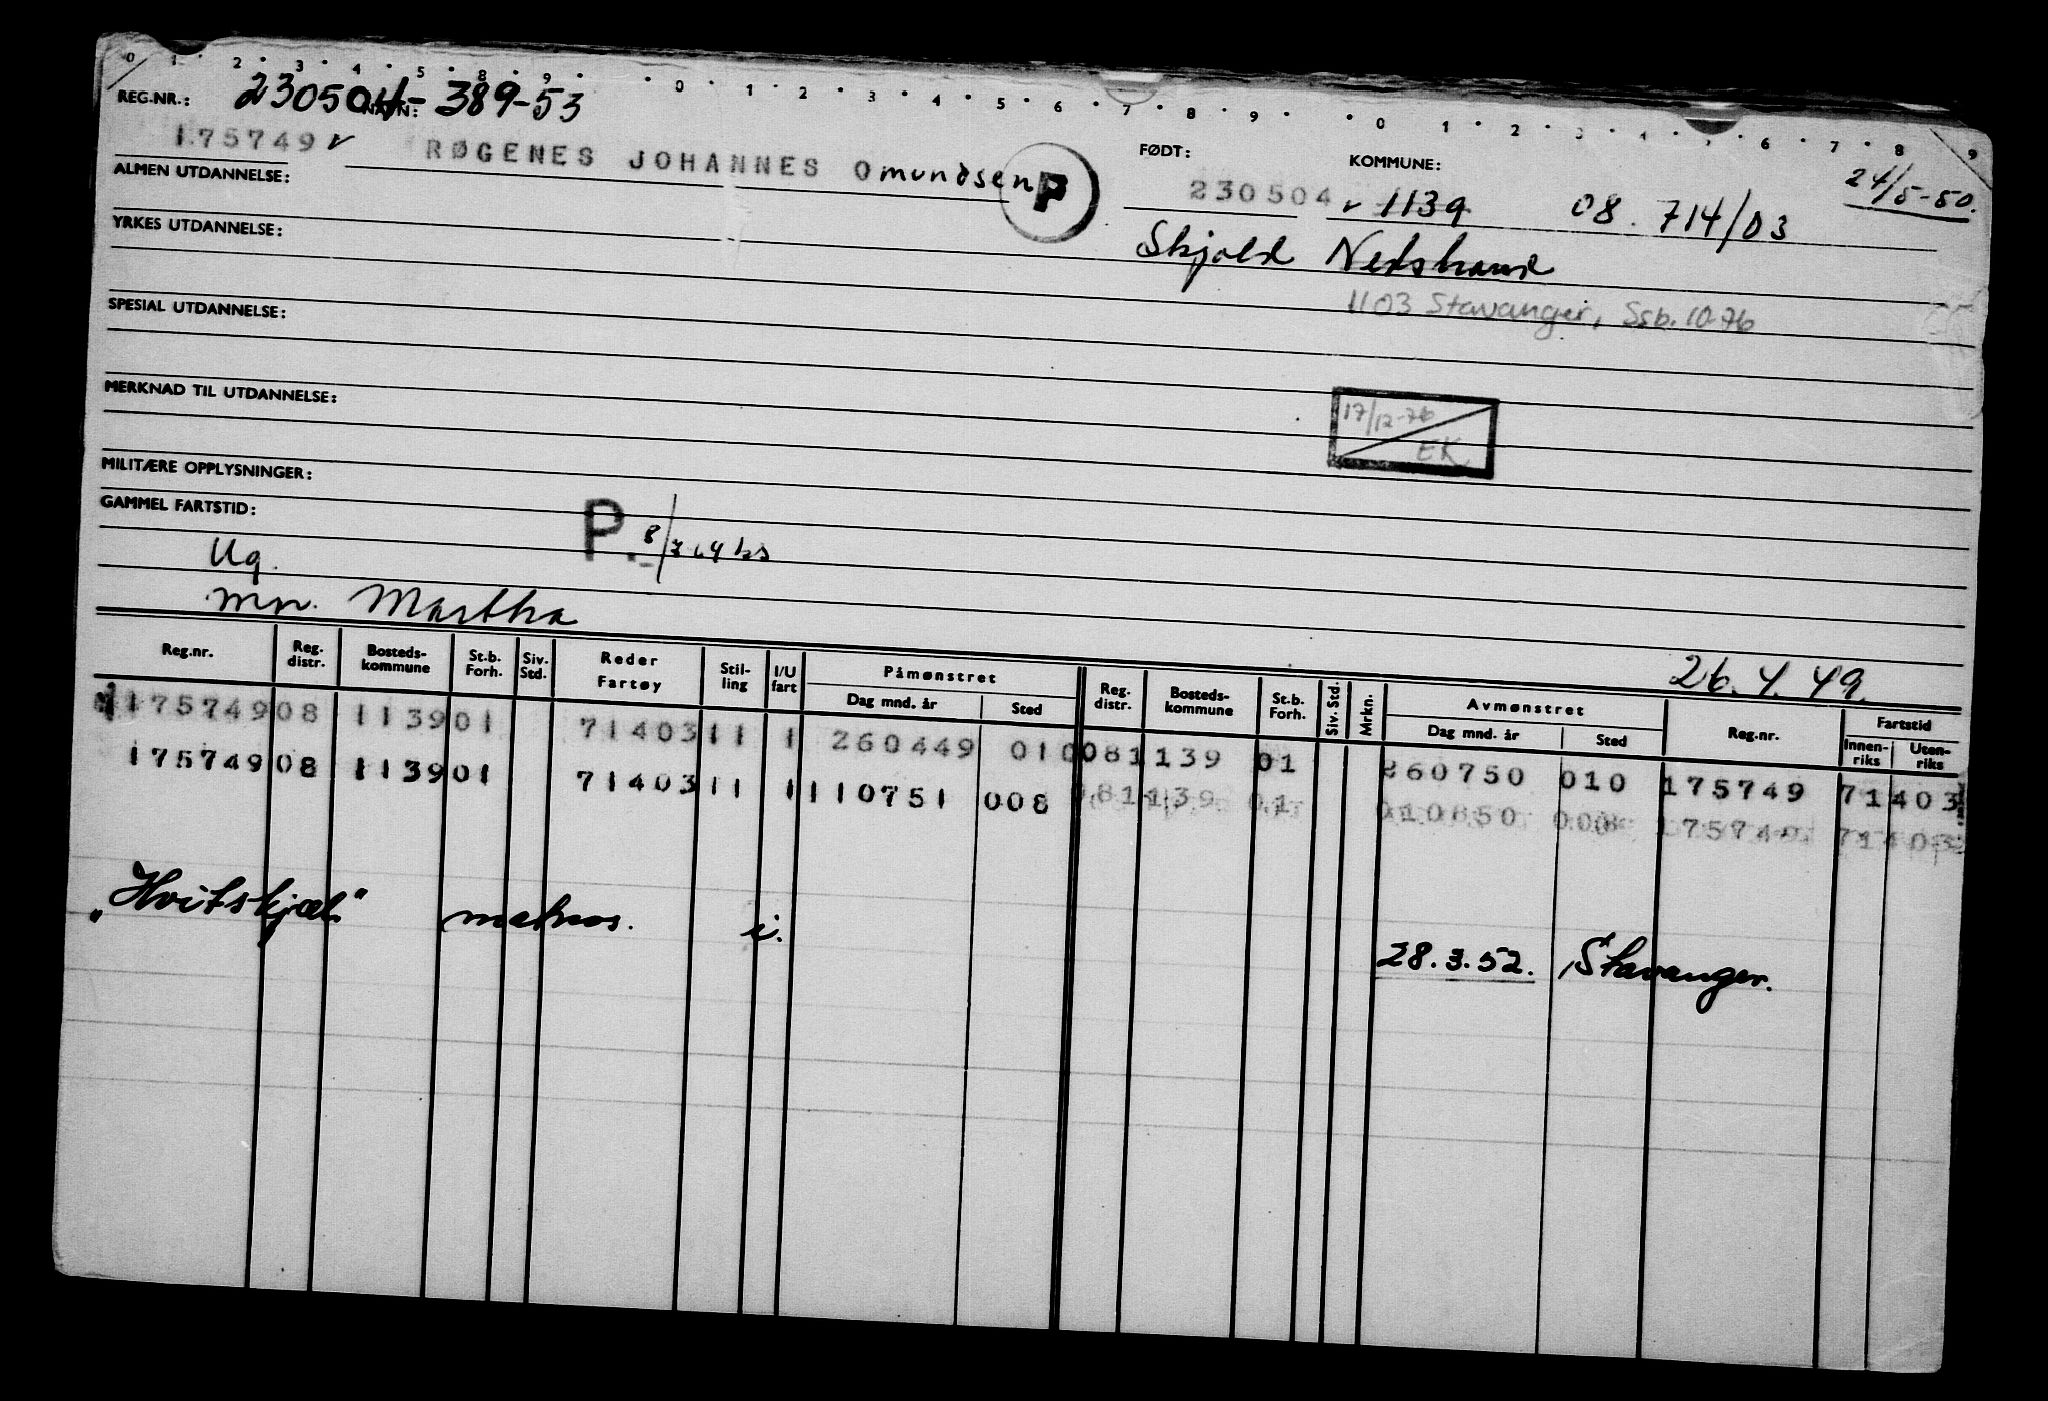 0 1 2 3 4 5 8 9 0 1 2 3 4 5 6 7 8 9 0 1 2 3 4 5 6 7 8 9
REG.NR.: 230504-389-53 NAVN: FØDT: KOMMUNE: 24/5-50.
175749 v RØGENES JOHANNES Omundsen P 230504 v 1139 08. 714/03
ALMEN UTDANNELSE:
Skjold Nedstrand
YRKES UTDANNELSE:
1103 Stavanger, Ssb. 10-76
SPESIAL UTDANNELSE:
MERKNAD TIL UTDANNELSE:
17/12-76
EK
MILITÆRE OPPLYSNINGER:
GAMMEL FARTSTID:
P. 8/7 64
Ug.
mn. Martha 26.4.49
Reg.nr. Reg. distr. Bosteds-kommune St.b. Forh. Siv. Std. Reder Fartøy Stil-ling I/U fart Påmønstret Dag mnd. år Sted Reg. distr. Bosteds-kommune St.b. Forh. Siv. Std. Mrkn. Avmønstret Dag mnd. år Sted Reg.nr. Fartstid Innen-riks Uten-riks
175749 08 1139 01 71403 11 1 260449 010 08 1139 01 260750 010 175749 71 403
175749 08 1139 01 71403 11 1 110751 008 08 1139 01 008 71403
"Hvitskjæl" matros. i. 28.3.52. Stavanger.